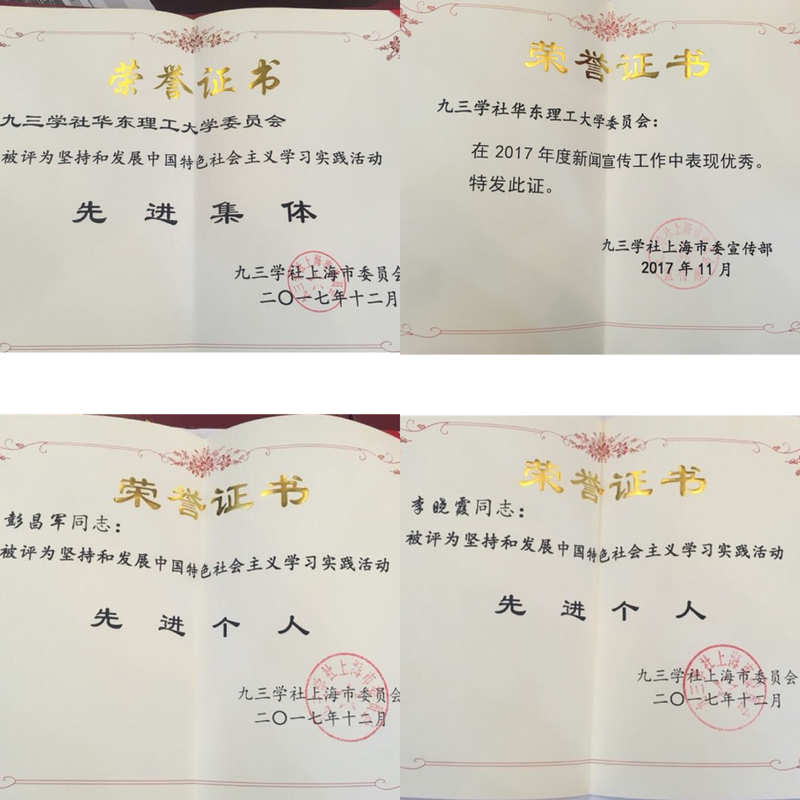 荣誉证书
九三学社华东理工大学委员会
被评为坚持和发展中国特色社会主义学习实践活动
先进集体
九三学社上海市委员会
二〇一七年十二月
荣誉证书
九三学社华东理工大学委员会：
在2017年度新闻宣传工作中表现优秀。
特发此证。
九三学社上海市委宣传部
2017年11月
荣誉证书
彭昌军同志：
被评为坚持和发展中国特色社会主义学习实践活动
先进个人
九三学社上海市委员会
二〇一七年十二月
荣誉证书
李晓霞同志：
被评为坚持和发展中国特色社会主义学习实践活动
先进个人
九三学社上海市委员会
二〇一七年十二月